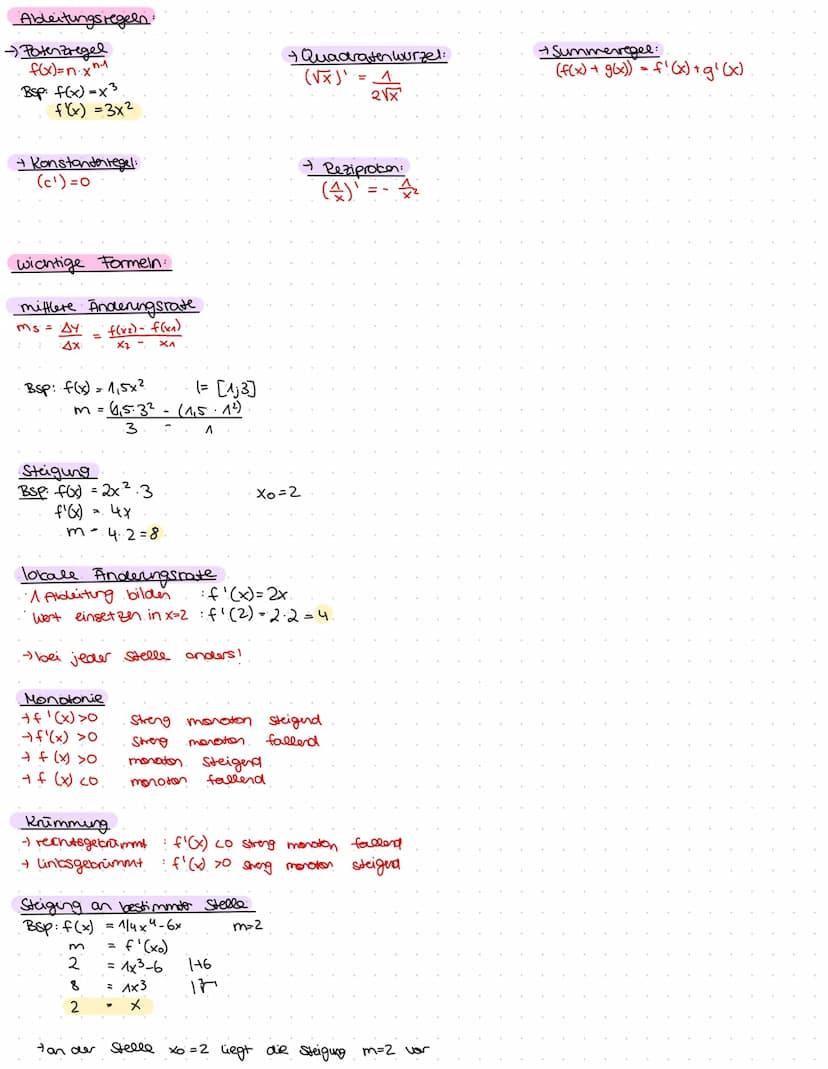 Ableitungsregeln:
→ Potenzregel
f(x)=n·xⁿ⁻¹
Bsp: f(x)=x³
f'(x) = 3x²
→ Quadratenwurzel:
(√x)' = 1/(2√x)
→ Summenregel:
(f(x) + g(x)) = f'(x)+g'(x)
→ Konstantenregel:
(c')=0
→ Reziproken:
(1/x)' = - 1/x²
wichtige Formeln:
mittlere Änderungsrate
ms = Δy/Δx = (f(x2) - f(x1))/(x2 - x1)
Bsp: f(x) = 1,5x² I= [1;3]
m = (1,5·3² - (1,5 · 1²)
3 - 1
Steigung
Bsp: f(x) = 2x² · 3 x0=2
f'(x) = 4x
m = 4·2=8
lokale Änderungsrate
· 1 Ableitung bilden : f'(x)=2x
· Wert einsetzen in x=2 : f'(2) = 2·2 = 4
→ bei jeder Stelle anders!
Monotonie
→ f'(x)>0 streng monoton steigend
→ f'(x) >0 streng monoton fallend
→ f (x) >0 monoton steigend
→ f (x) <0 monoton fallend
Krümmung
→ rechtsgekrümmt : f'(x) <0 streng monoton fallend
→ linksgekrümmt : f'(x) >0 streng monoton steigend
Steigung an bestimmter Stelle
Bsp: f(x) = 1/4x⁴-6x m=2
m = f'(x0)
2 = 1x³-6 |+6
8 = 1x³ |³√
2 = x
→ an der Stelle x0=2 liegt die Steigung m=2 vor